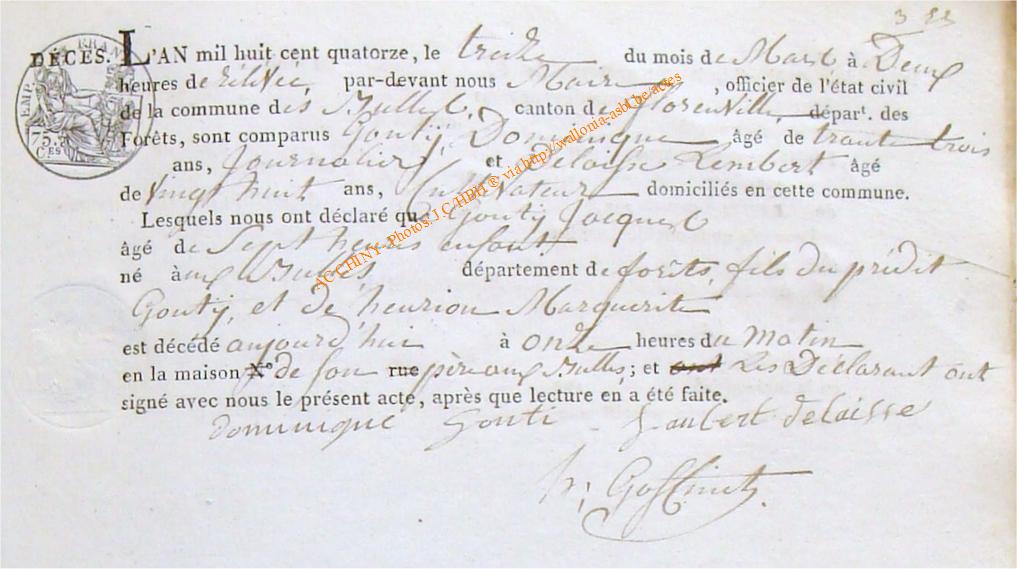 3 22
DÉCÈS. L'AN mil huit cent quatorze, le treize du mois de Mars à Deux
heures de rélevée, par-devant nous Maire, officier de l'état civil
de la commune des Bulles, canton de florenville, dépar.t des
Forêts, sont comparus Gouty, Dominique âgé de trante trois
ans, Journalier et Delaisse Lembert âgé
de vingt huit ans, Cultivateur domiciliés en cette commune.
Lesquels nous ont déclaré que Gouty Jacques
âgé de Sept heures enfant
né à aux Bulles, département de forêts, fils du prédit
Gouty, et de henrion Marguerite
est décédé aujourd'hui à onze heures du Matin
en la maison N.º de son rue père aux Bulles; et ont Les Déclarant ont
signé avec nous le présent acte, après que lecture en a été faite.
dominique Gouti Lambert delaisse
h, Goffinet
EMP FRAN
75.
CES
AC CHINY - Photos. J.C/HBH ® via http://wallonia-asbl.be.actes